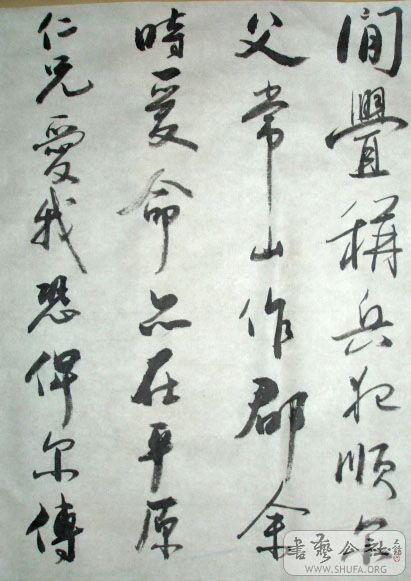 閒舋稱兵犯順尔
父常山作郡余
時受命亦在平原
仁兄愛我恐俾尔傳
書藝公社
WWW.SHUFA.ORG